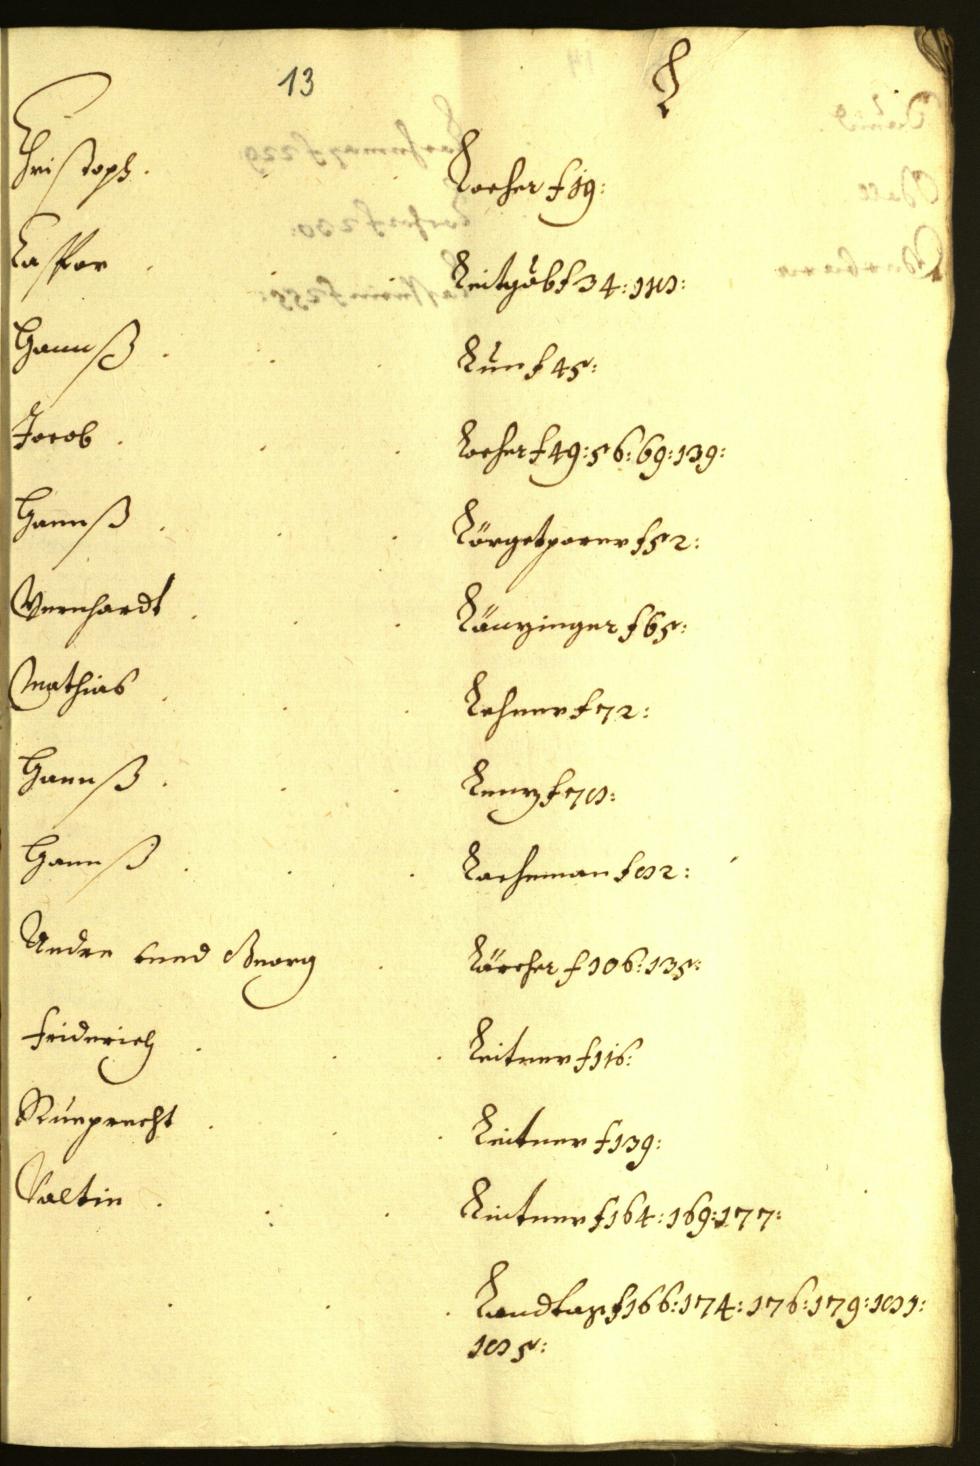 13 L
Christoph . Locher f 19:
Caspar . . . Leitgäb f 34: 118:
Hannß . . . Lun f 45:
Jacob . . . Locher f 49: 56: 69: 139:
Hannß . . . Lörgetporer f 52:
Bernhardt . . . Länzinger f 65:
Mathias . . . Lehner f 72:
Hannß . . . Lenz f 78:
Hannß . . . Lacheman f 82:
Andre unnd Georg . Lärcher f 106: 135:
Friderich . . . Leitner f 116:
Rueprecht . . . Leitner f 139:
Valtin . . . Leitner f 164: 169: 177:
. . . . Landtag f 166: 174: 176: 179: 181:
185: